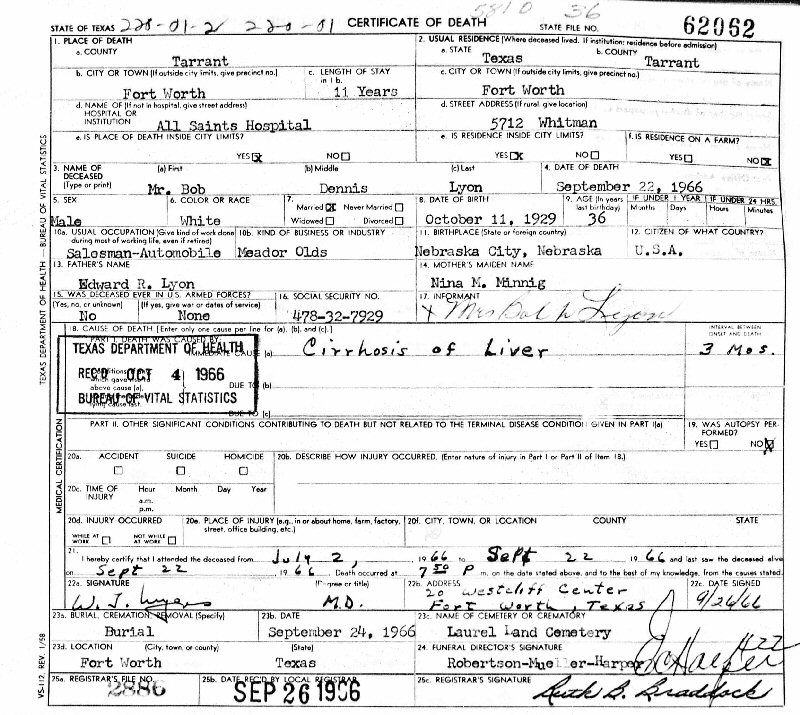 5810 36
STATE OF TEXAS 228-01-2 220-01 CERTIFICATE OF DEATH STATE FILE NO. 62062
1. PLACE OF DEATH 2. USUAL RESIDENCE (Where deceased lived. If institution: residence before admission)
a. COUNTY a. STATE b. COUNTY
Tarrant Texas Tarrant
b. CITY OR TOWN (If outside city limits, give precinct no.) c. LENGTH OF STAY in 1 b. c. CITY OR TOWN (If outside city limits, give precinct no.)
Fort Worth 11 Years Fort Worth
d. NAME OF (If not in hospital, give street address) d. STREET ADDRESS (If rural, give location)
HOSPITAL OR
INSTITUTION All Saints Hospital 5712 Whitman
e. IS PLACE OF DEATH INSIDE CITY LIMITS? e. IS RESIDENCE INSIDE CITY LIMITS? f. IS RESIDENCE ON A FARM?
YES x NO YES x NO YES NO x
3. NAME OF DECEASED (a) First (b) Middle (c) Last 4. DATE OF DEATH
(Type or print) Mr. Bob Dennis Lyon September 22, 1966
5. SEX 6. COLOR OR RACE 7. Married x Never Married Widowed Divorced 8. DATE OF BIRTH 9. AGE (In years last birthday) IF UNDER 1 YEAR Months Days IF UNDER 24 HRS. Hours Minutes
Male White October 11, 1929 36
10a. USUAL OCCUPATION (Give kind of work done during most of working life, even if retired) 10b. KIND OF BUSINESS OR INDUSTRY 11. BIRTHPLACE (State or foreign country) 12. CITIZEN OF WHAT COUNTRY?
Salesman-Automobile Meador Olds Nebraska City, Nebraska U.S.A.
13. FATHER'S NAME 14. MOTHER'S MAIDEN NAME
Edward R. Lyon Nina M. Minnig
15. WAS DECEASED EVER IN U.S. ARMED FORCES? 16. SOCIAL SECURITY NO. 17. INFORMANT
(Yes, no, or unknown) (If yes, give war or dates of service)
No None 478-32-7929 x Mrs Bob Lyon
18. CAUSE OF DEATH [Enter only one cause per line for (a), (b), and (c).] INTERVAL BETWEEN ONSET AND DEATH
PART I. DEATH WAS CAUSED BY:
IMMEDIATE CAUSE (a) Cirrhosis of Liver 3 Mos.
TEXAS DEPARTMENT OF HEALTH
REC'D OCT 4 1966
BUREAU OF VITAL STATISTICS
DUE TO (b)
DUE TO (c)
PART II. OTHER SIGNIFICANT CONDITIONS CONTRIBUTING TO DEATH BUT NOT RELATED TO THE TERMINAL DISEASE CONDITION GIVEN IN PART I(a) 19. WAS AUTOPSY PERFORMED?
YES NO x
20a. ACCIDENT SUICIDE HOMICIDE 20b. DESCRIBE HOW INJURY OCCURRED. (Enter nature of injury in Part I or Part II of Item 18.)
20c. TIME OF INJURY Hour Month Day Year
a.m.
p.m.
20d. INJURY OCCURRED 20e. PLACE OF INJURY (e.g., in or about home, farm, factory, street, office building, etc.) 20f. CITY, TOWN, OR LOCATION COUNTY STATE
WHILE AT WORK NOT WHILE AT WORK
21. I hereby certify that I attended the deceased from July 2, 1966 to Sept 22 1966 and last saw the deceased alive
on Sept 22 1966 Death occurred at 7 50 P m. on the date stated above, and to the best of my knowledge, from the causes stated.
22a. SIGNATURE (Degree or title) 22b. ADDRESS 22c. DATE SIGNED
W. J. Myers M.D. 20 Westcliff Center Fort Worth, Texas 9/26/66
23a. BURIAL, CREMATION, REMOVAL (Specify) 23b. DATE 23c. NAME OF CEMETERY OR CREMATORY
Burial September 24, 1966 Laurel Land Cemetery
23d. LOCATION (City, town, or county) (State) 24. FUNERAL DIRECTOR'S SIGNATURE
Fort Worth Texas Robertson-Mueller-Harper Harper 422
25a. REGISTRAR'S FILE NO. 25b. DATE REC'D BY LOCAL REGISTRAR 25c. REGISTRAR'S SIGNATURE
2886 SEP 26 1966 Ruth G. Braddock
TEXAS DEPARTMENT OF HEALTH — BUREAU OF VITAL STATISTICS
MEDICAL CERTIFICATION
VS-112, REV. 1/58